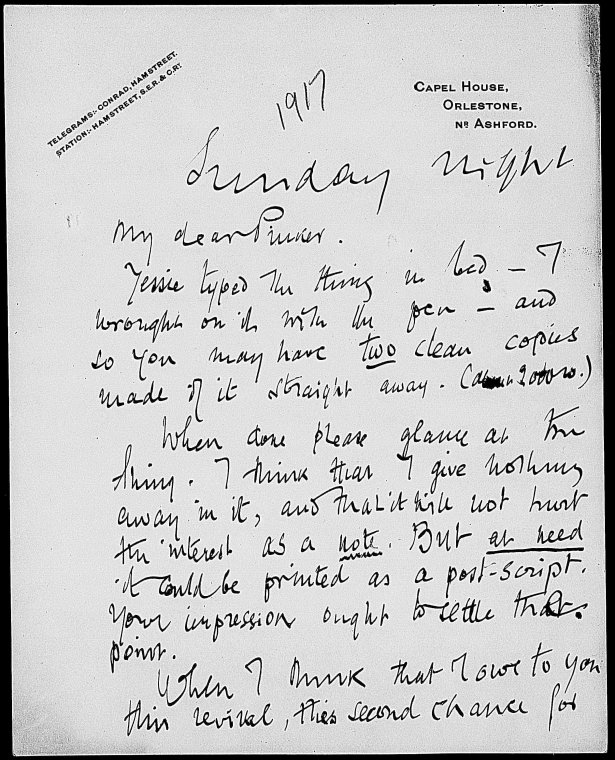 TELEGRAMS:- CONRAD, HAMSTREET.
STATION:- HAMSTREET, S.E.R. & C.RY.
CAPEL HOUSE,
ORLESTONE,
NR ASHFORD.
1917
Sunday night
My dear Pinker.
Jessie typed the thing in bed – I
wrought on it with the pen – and
so you may have two clean copies
made of it straight away. (about 2000 w.)
When done please glance at the
thing. I think that I give nothing
away in it, and that it will not hurt
the interest as a note. But at need
it could be printed as a post-script.
Your impression ought to settle that
point.
When I think that I owe to you
this revival, this second chance for